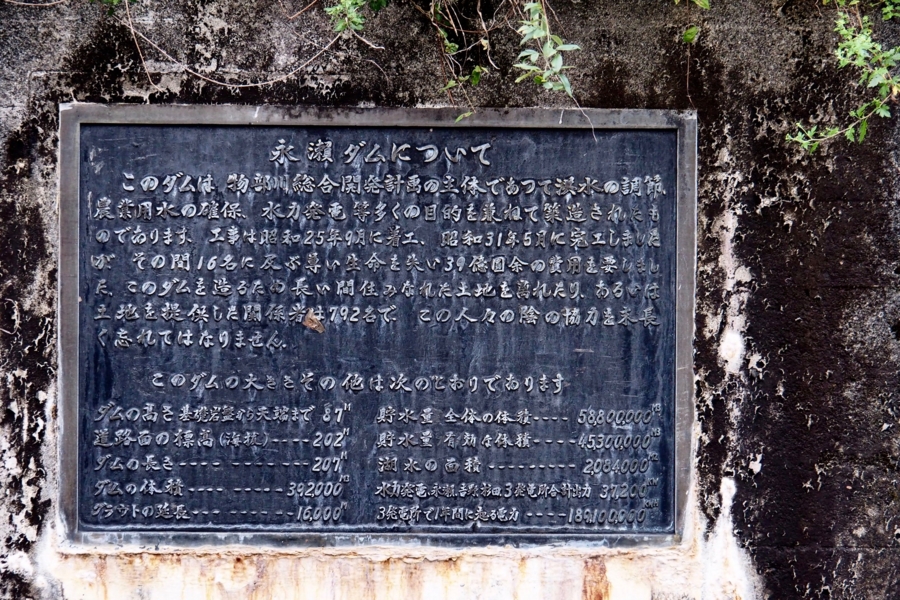 永瀬ダムについて
このダムは、物部川総合開発計画の主体であつて洪水の調節、
農業用水の確保、水力発電等多くの目的を兼ねて築造されたも
のであります。工事は昭和25年9月に着工、昭和31年5月に完工しました
が その間16名に及ぶ尊い生命を失い39億圓余の費用を要しまし
た。このダムを造るため長い間住みなれた土地を離れたり、あるいは
土地を提供した関係者は792名で この人々の陰の協力を永長
く忘れてはなりません。
このダムの大きさその他は次のとおりであります
ダムの高さ 基礎岩盤から天端まで 87M
道路面の標高(海抜)-----202M
ダムの長さ---- --------207M
ダムの体積-----------392,000M3
グラウトの延長-----------16,000M
貯水量 全体の体積----58,800,000M3
貯水量 有効な体積----45,300,000M3
湖水の面積 ---------2,084,000M2
水力発電、永瀬、吉野、杉田、3発電所合計出力 37,200KW
3発電所で1年間に起る電力----